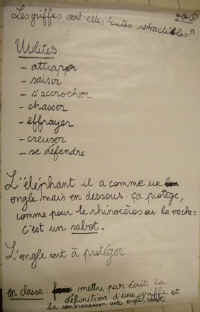 Les griffes sont elles toutes rétractiles?
Utilités
- attraper
- saisir
- s'accrocher
- chasser
- effrayer
- creuser
- se défendre
L'éléphant il a comme un
ongle mais en dessous, ça protège,
comme pour le rhinocéros ou la vache
c'est un sabot.
L'ongle sert à protéger
en classe mettre par écrit la
définition d'une griffe et
la comparaison avec ongle sabot